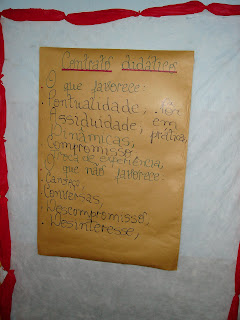 Contrato didático
O que favorece:
Pontualidade,
Assiduidade,
Dinâmicas,
Compromisso,
Troca de experiência,
O que não favorece:
Conversas,
Descompromisso,
Desinteresse,